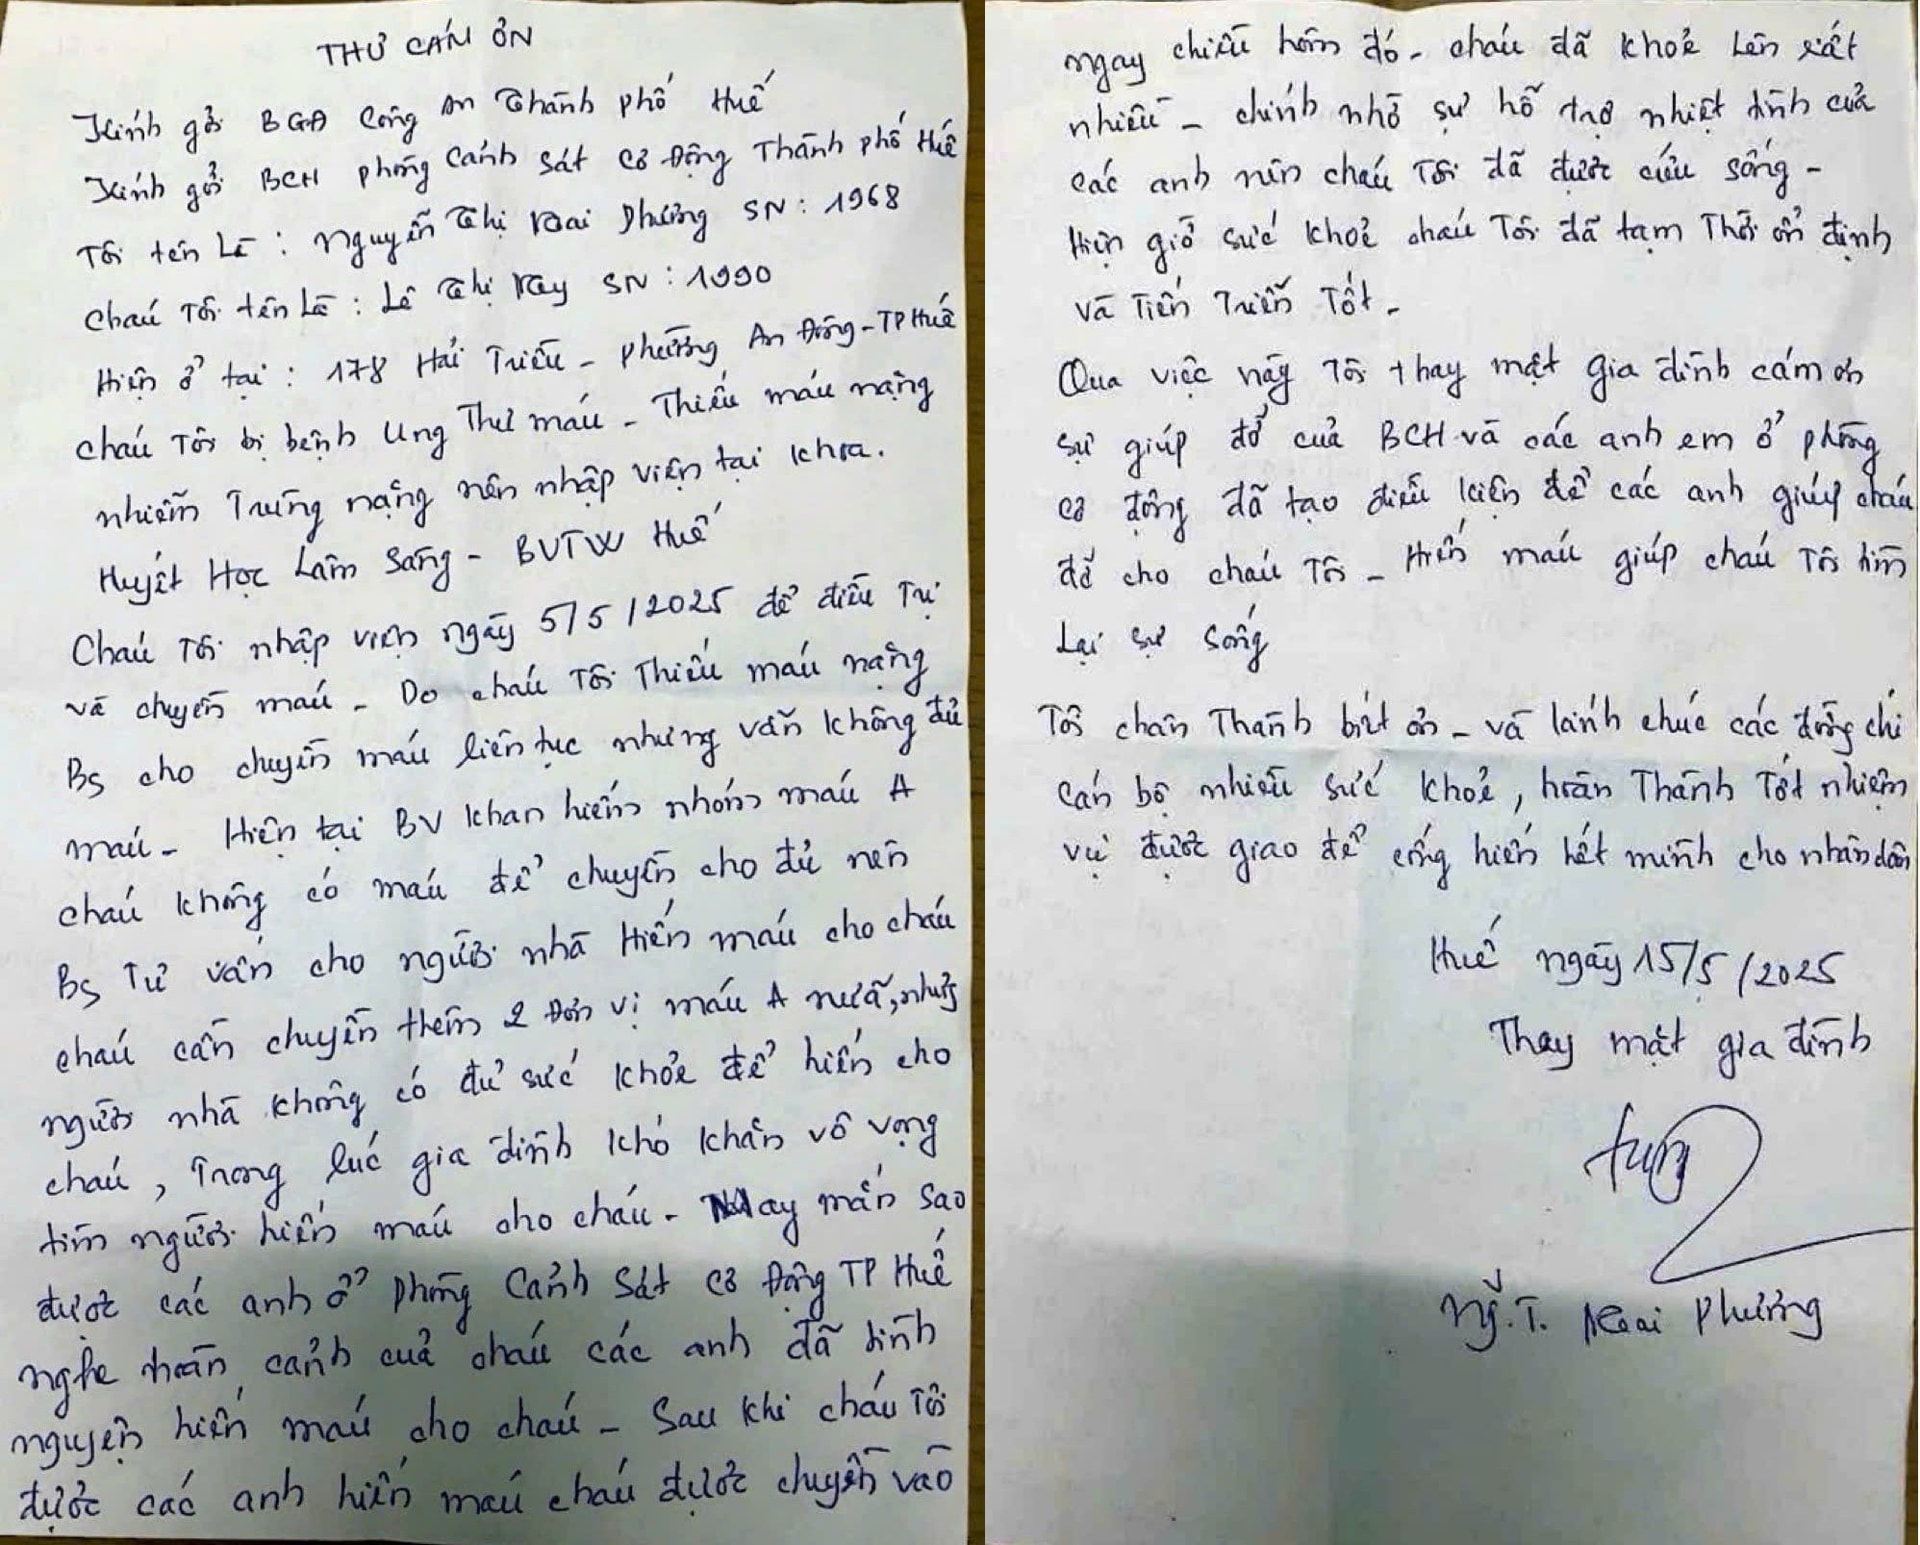 THƯ CÁM ƠN
Kính gởi BGĐ Công An Thành phố Huế
Kính gởi BCH phòng Cảnh sát Cơ Động Thành phố Huế
Tôi tên Là : Nguyễn Thị Mai Phương SN : 1968
Cháu Tôi tên Là : Lê Thị SN : 1990
Hiện ở tại : 178 Hải Triều - phường An Đông - TP Huế
cháu Tôi bị bệnh Ung Thư máu - Thiếu máu nặng
nhiễm Trùng nặng nên nhập viện tại khoa.
Huyết Học Lâm Sàng - BVTW Huế
Cháu Tôi nhập viện ngày 5/5/2025 để điều Trị
và chuyền máu - Do cháu Tôi Thiếu máu nặng
Bs cho chuyền máu liên tục nhưng vẫn không đủ
máu - Hiện tại BV khan hiếm nhóm máu A
cháu không có máu để chuyền cho đủ nên
Bs Tư vấn cho người nhà Hiến máu cho cháu
cháu cần chuyền thêm 2 Đơn vị máu A nữa, nhưng
người nhà không có đủ sức khỏe để hiến cho
cháu, Trong lúc gia đình khó khăn vô vọng
tìm người hiến máu cho cháu - May mắn sao
được các anh ở phòng Cảnh Sát Cơ Động TP Huế
nghe hoàn cảnh của cháu các anh đã tình
nguyện hiến máu cho cháu - Sau khi cháu Tôi
được các anh hiến máu cháu được chuyền vào
ngay chiều hôm đó - cháu đã khoẻ lên rất
nhiều - chính nhờ sự hỗ trợ nhiệt tình của
các anh nên cháu Tôi đã được cứu sống -
Hiện giờ sức khoẻ cháu Tôi đã tạm Thời ổn định
và Tiến Triển Tốt -
Qua việc này Tôi thay mặt gia đình cám ơn
sự giúp đở của BCH và các anh em ở phòng
cơ động đã tạo điều kiện để các anh giúp cháu
đở cho cháu Tôi - Hiến máu giúp cháu Tôi tìm
Lại sự sống
Tôi chân Thành biết ơn - và lành chúc các đồng chí
cán bộ nhiều sức khoẻ, hoàn Thành Tốt nhiệm
vụ được giao để cống hiến hết mình cho nhân dân
Huế ngày 15/5/2025
Thay mặt gia đình
Ng̃. T. Mai Phương